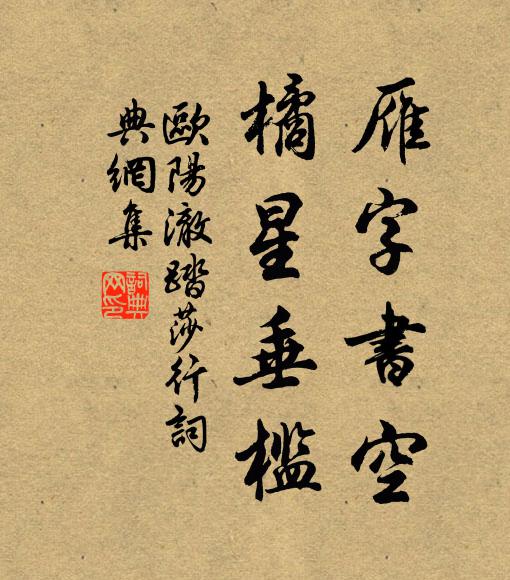 雁字書空
橘星垂檻
歐陽澈踏莎行詞
典網集
詞典網印